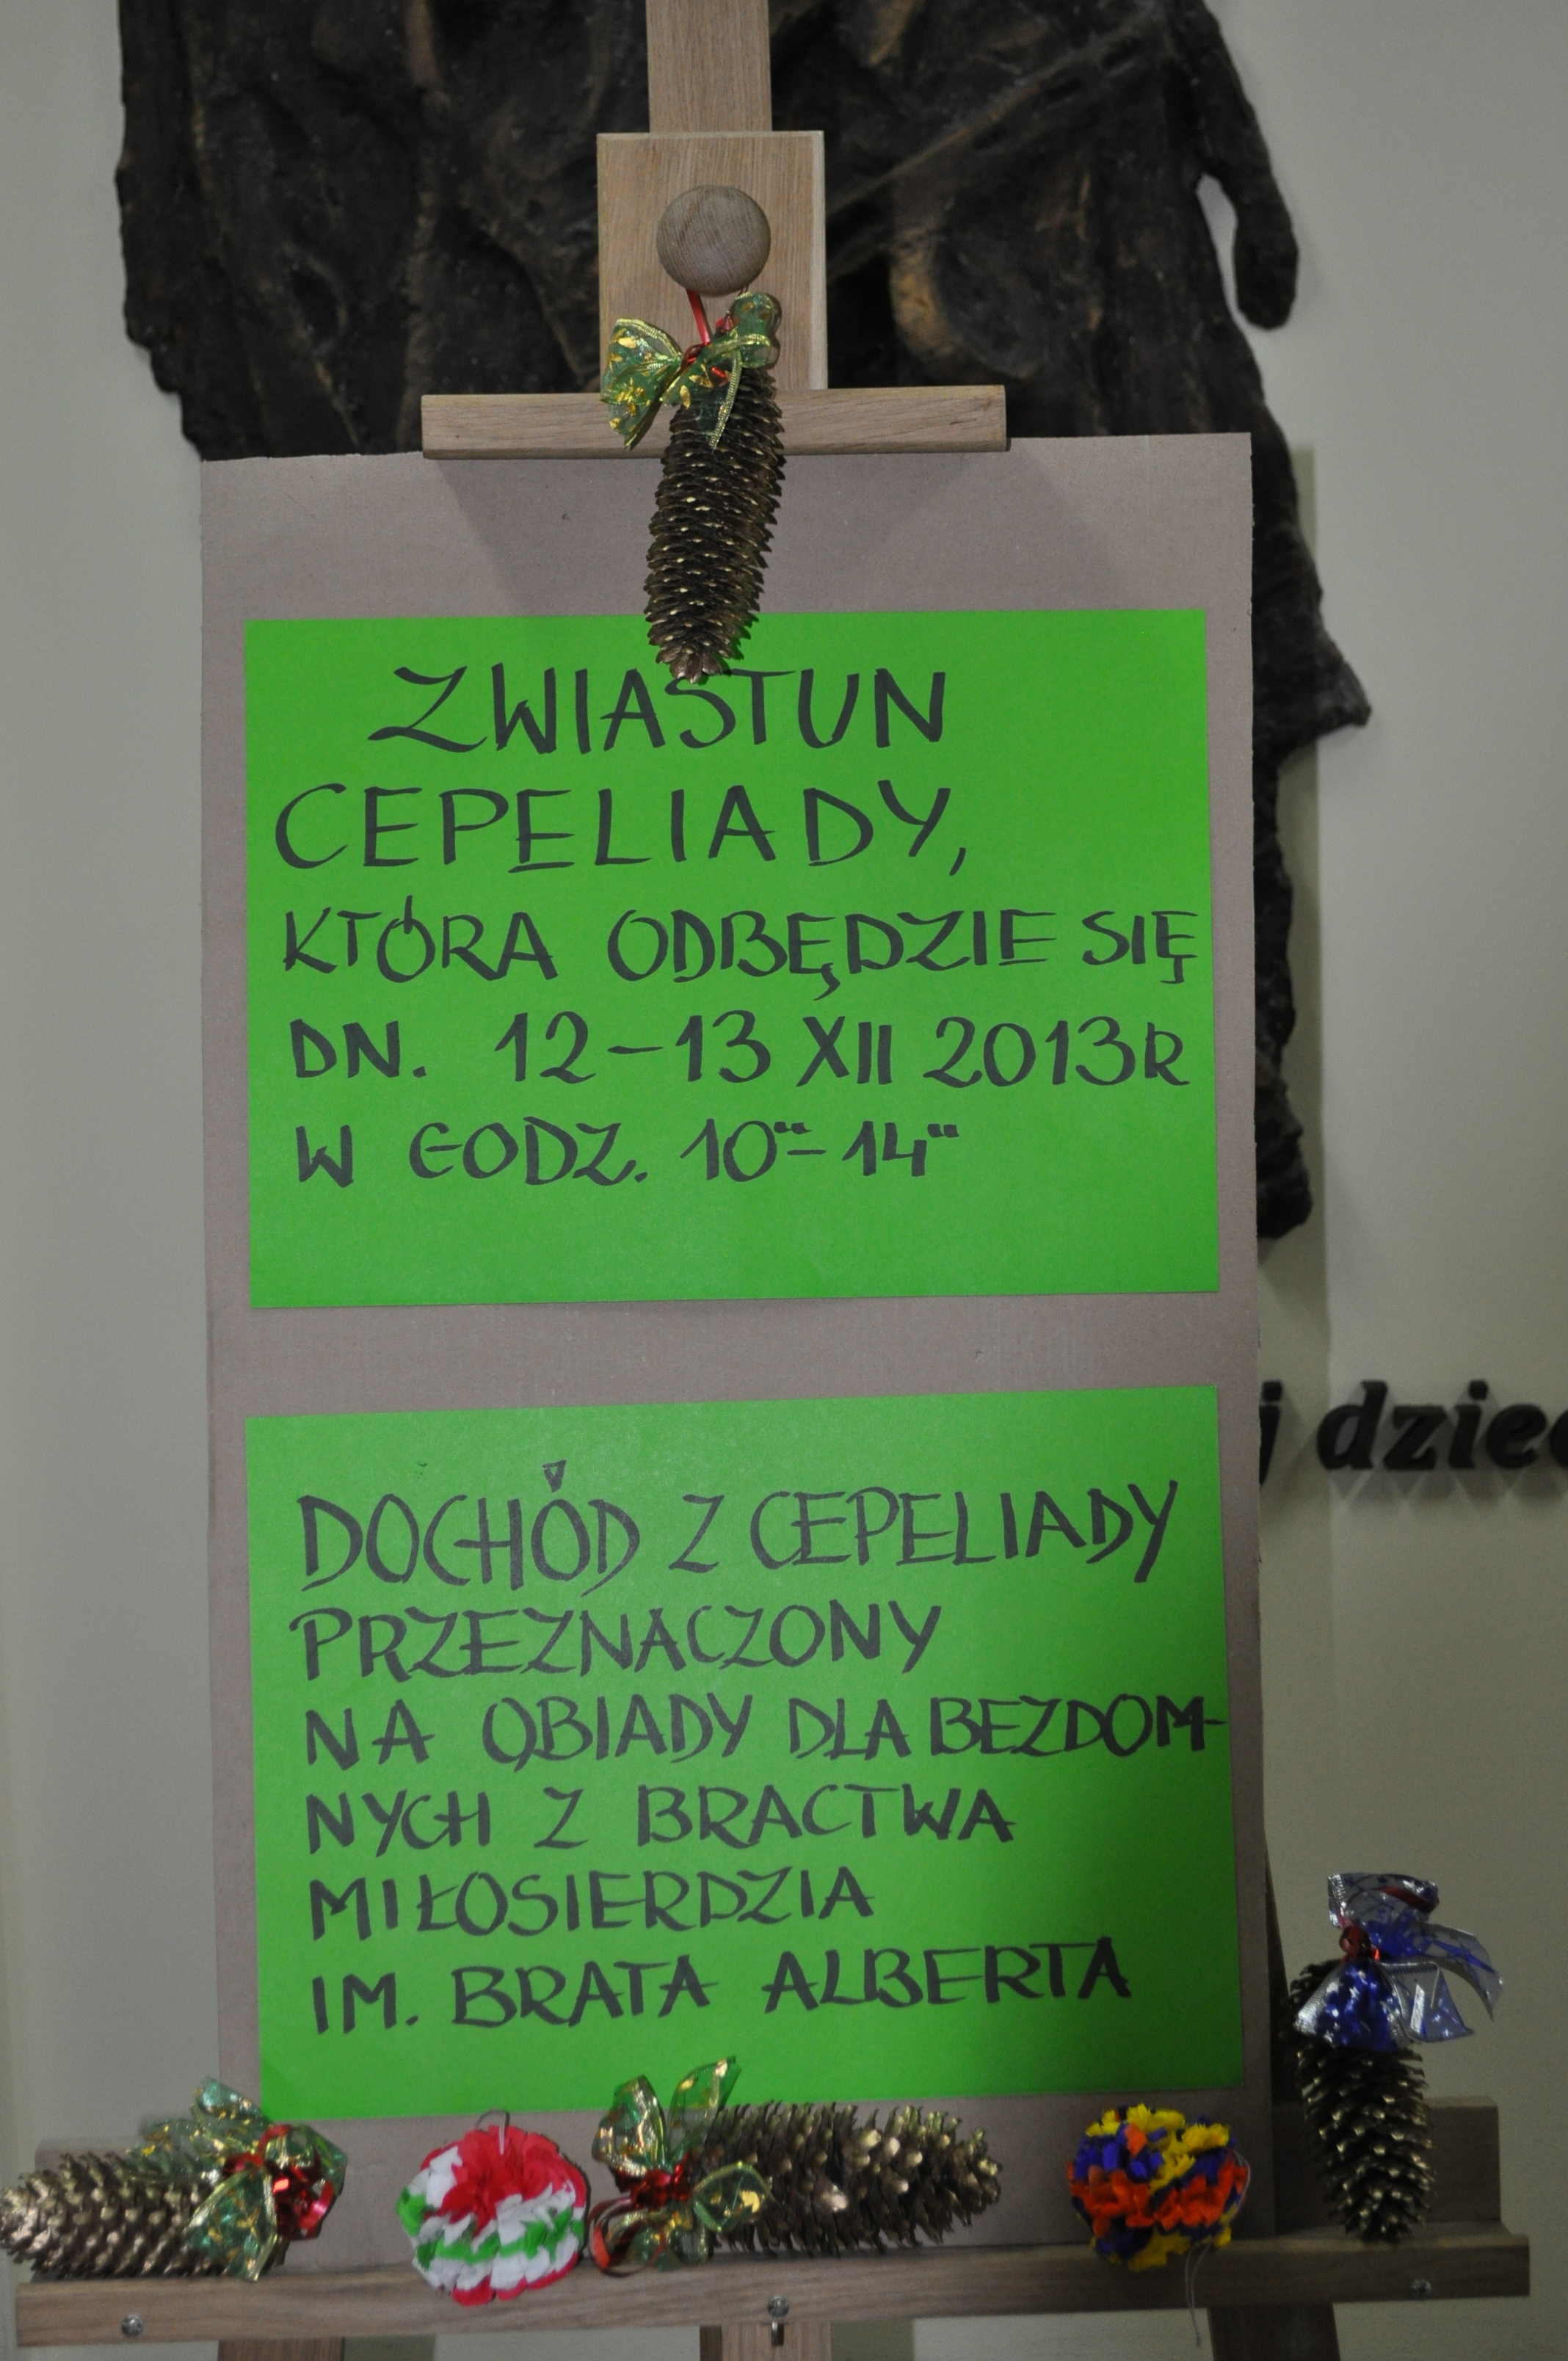 ZWIASTUN
CEPELIADY,
KTÓRA ODBĘDZIE SIĘ
DN. 12-13 XII 2013R
W GODZ. 10⁰⁰-14⁰⁰
j dziec
DOCHÓD Z CEPELIADY
PRZEZNACZONY
NA OBIADY DLA BEZDOM-
NYCH Z BRACTWA
MIŁOSIERDZIA
IM. BRATA ALBERTA